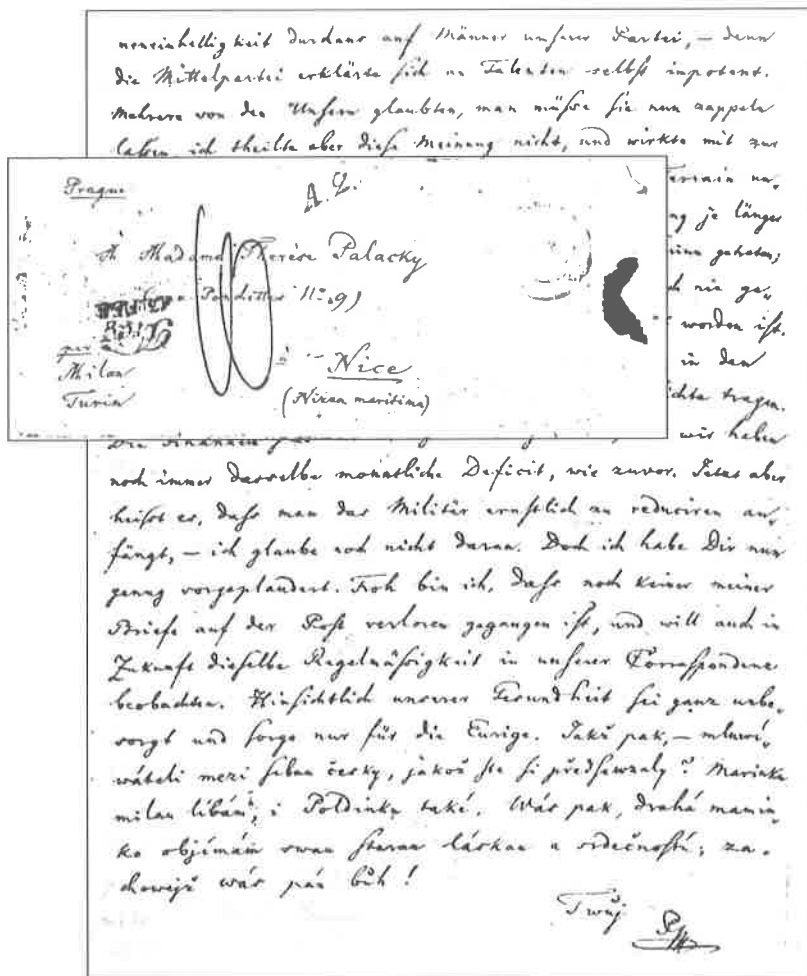 auf Männer unserer Partei, – denn
die Mittelpartei erklärte sich an Talenten selbst impotent.
Mehrere von den Unsern glaubten, man müsse sie nun zappeln
lassen, ich theilte aber diese Meinung nicht, und wirkte mit zur
Prague
A Madame Therese Palacky
No. 91
per
Milan
Turin
à Nice
(Nizza maritima)
Terrain
je länger
getreten;
nie ge„
worden ist.
in den
tragen.
Die Finanzen wir haben
noch immer dasselbe monatliche Deficit, wie zuvor. Jetzt aber
heisst es, dass man das Militär ernstlich zu reduciren an„
fängt, – ich glaube noch nicht daran. Doch ich habe Dir nun
genug vorgeplaudert. Froh bin ich, dass noch keiner meiner
Briefe auf der Post verloren gegangen ist, und will auch in
Zukunft dieselbe Regelmässigkeit in unserer Correspondenz
beobachten. Hinsichtlich unserer Gesundheit sei ganz unbe„
sorgt und sorge nur für die Eurige. Jakž pak, – mluwí„
wáteli mezi sebau česky, jakož ste si předsewzaly? Marinku
milau líbám, i Poldinku také. Wás pak, drahá mamin„
ko objímám swau starau láskau a srdečností; za„
chowejž wás pán bůh!
Twůj